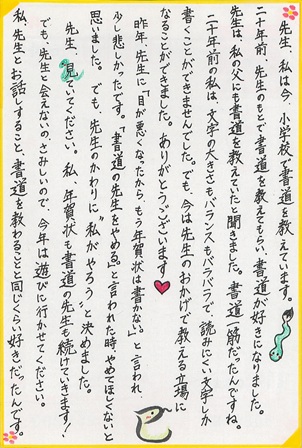 先生、私は今、小学校で書道を教えています。
二十年前、先生のもとで書道を教えてもらい書道が好きになりました。
先生は、私の父にも書道を教えていたと聞きました。書道一筋だったんですね。
二十年前の私は、文字の大きさもバランスもバラバラで、読みにくい文字しか
書くことができませんでした。でも、今は先生のおかげで教える立場に
なることができました。ありがとうございます
昨年、先生に「目が悪くなったから、もう年賀状は書かない。」と言われ
少し悲しかったです。「書道の先生をやめる」と言われた時、やめてほしくないと
思いました。でも、先生のかわりに〝私がやろう〟と決めました。
先生、見ていてください。私、年賀状も書道の先生も続けていきます!
でも、先生と会えないの、さみしいので、今年は遊びに行かせてください。
私、先生とお話しすること、書道を教わることと同じくらい好きだったんです